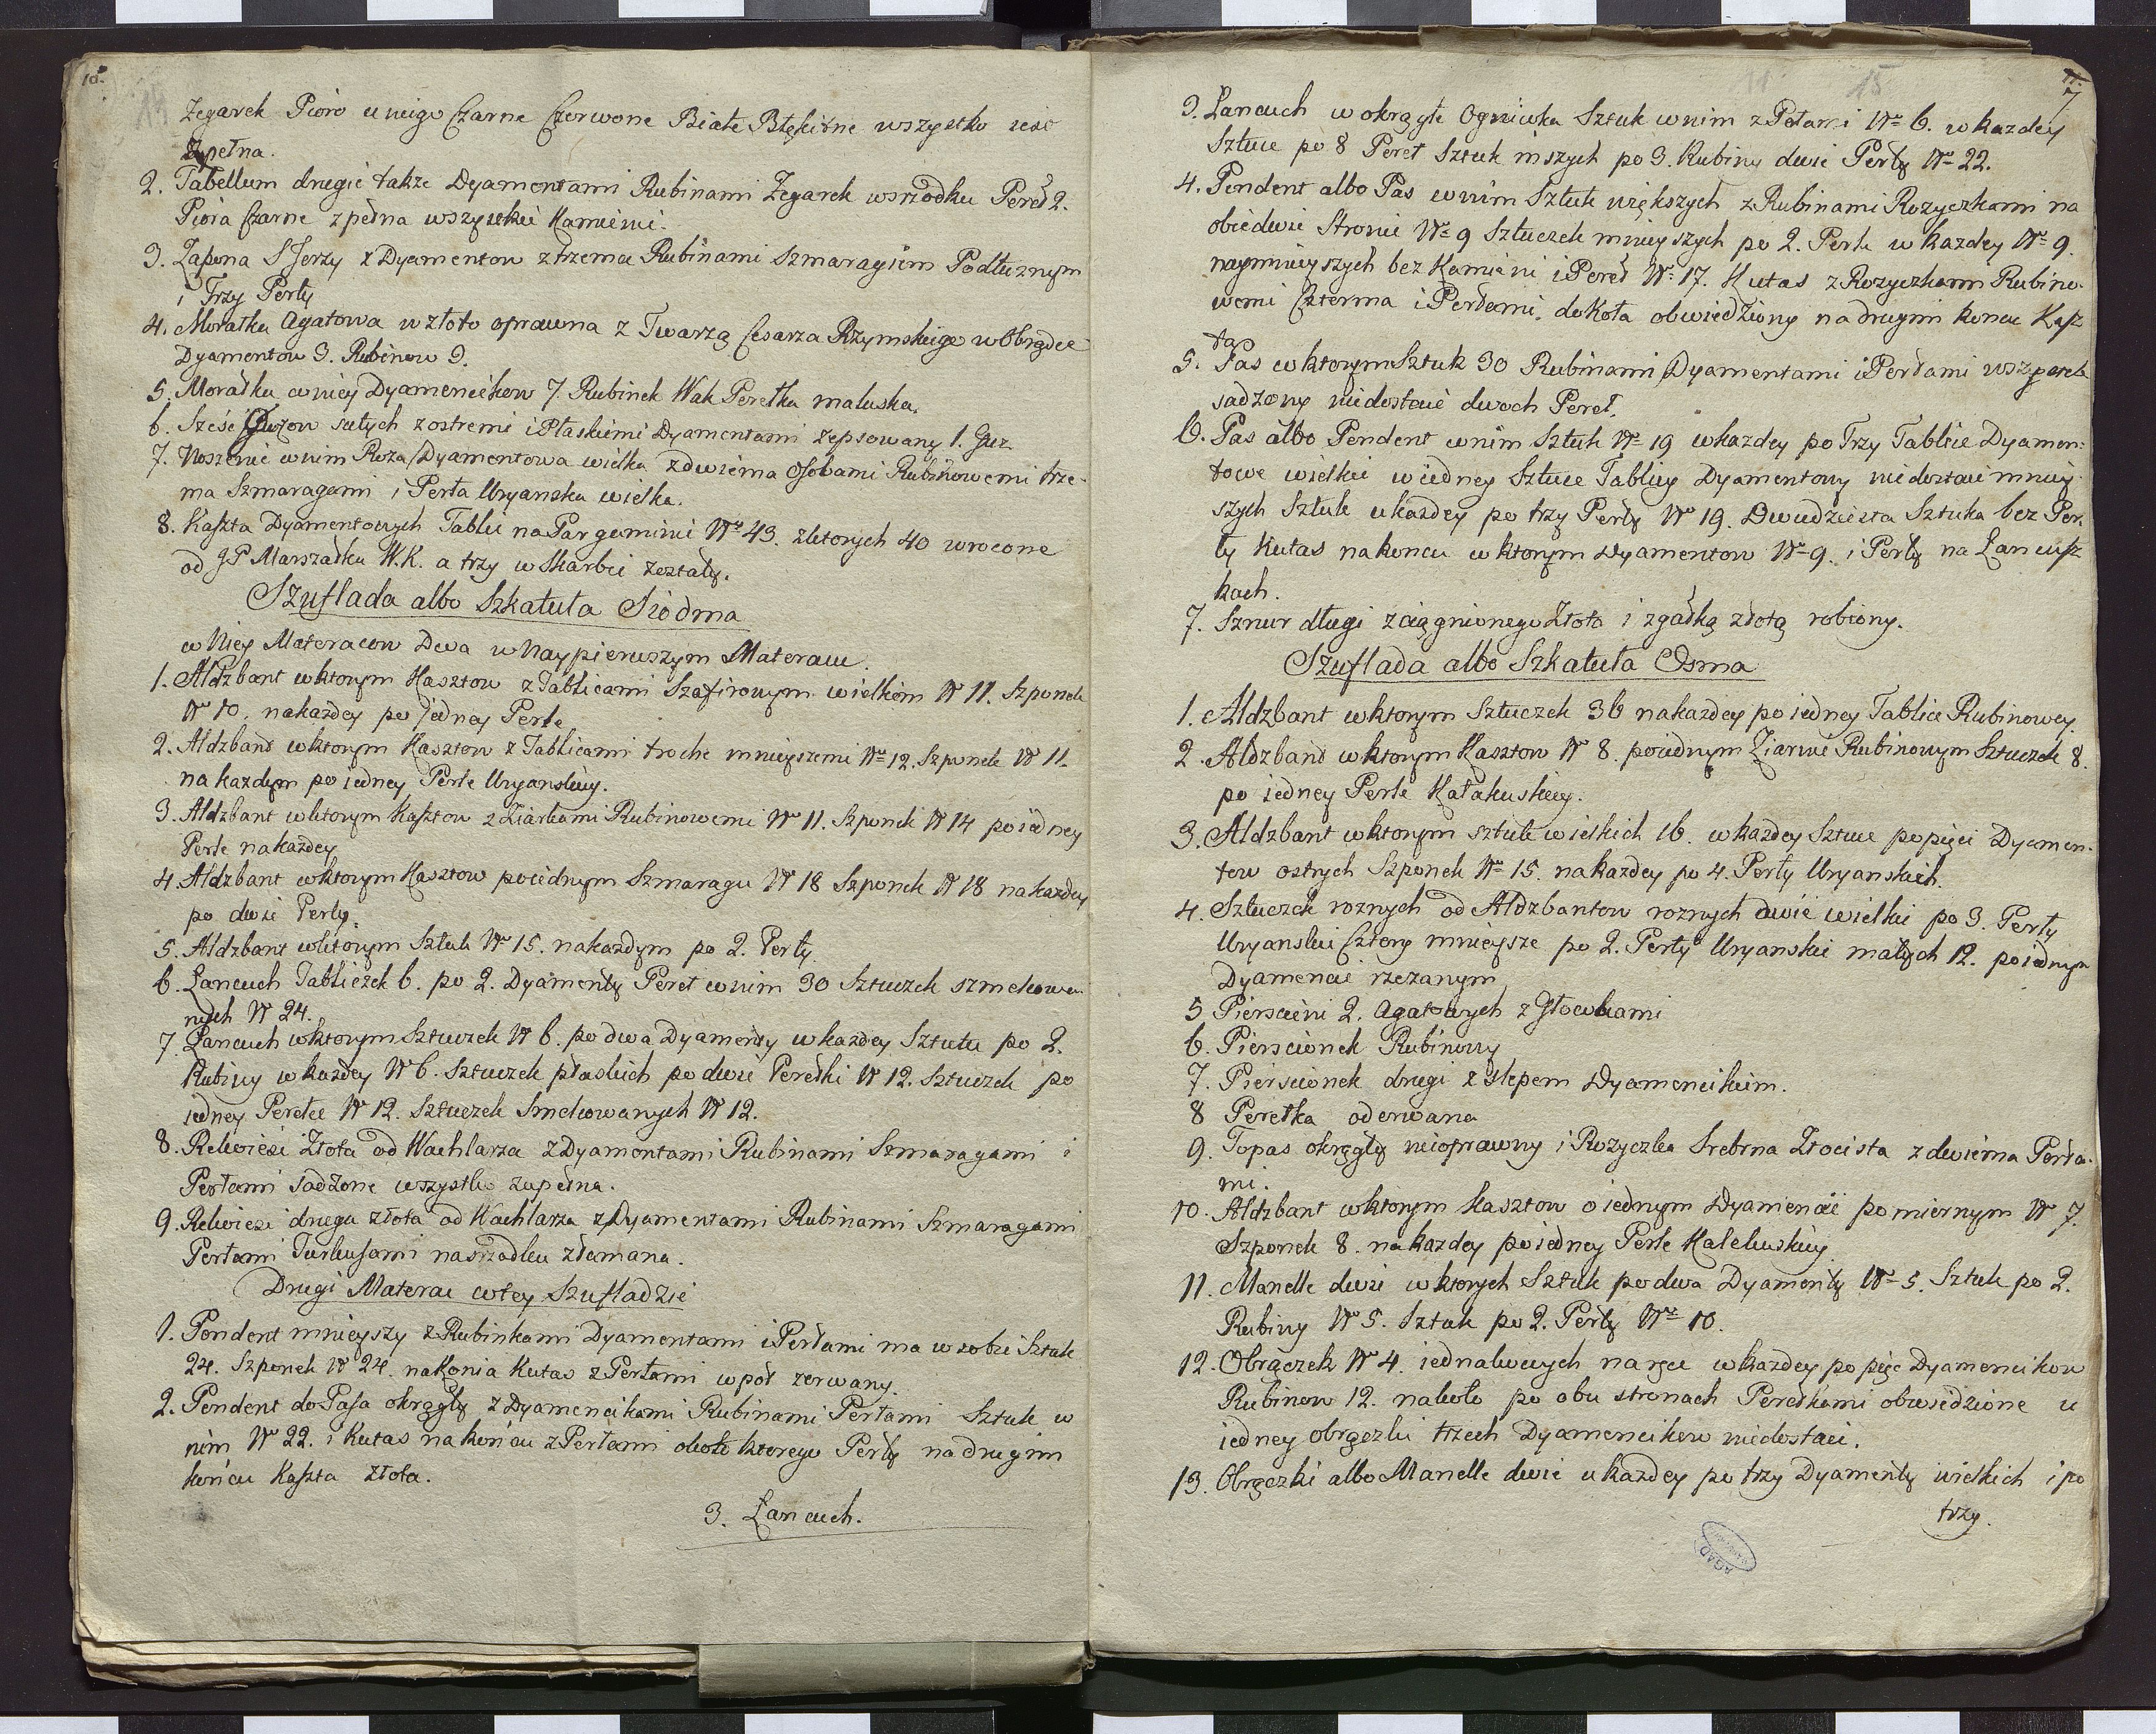 10.
Zegarek Pioro u niego Czarne Czerwone Białe Błękitne wszystko iest
zupełna.
2. Tabellum drugie także Dyamentami Rubinami Zegarek wsrzodku Pereł 2.
Piora Czarne zpełna wszystkie Kamieni.
3. Zapona S Jerzy z Dyamentow z trzema Rubinami Szmaragiem Podłuznym
i Trzy Perły
4. Moratka Agatowa w złoto oprawna z Twarzą Cesarza Rzymskiego w Obrądce
Dyamentow 3. Rubinow 3.
5. Moratka w niey Dyamencikow 7. Rubinek Wak Perełka maluska.
6. Sześć Guzow satych z ostremi i Płaskiemi Dyamentami zepsowany 1. Guz
7. Noszenie w nim Roza Dyamentowa wielka z dwiema Osobami Rubinowemi trze-
ma Szmaragami i Perła Uryanska wielka.
8. Kaszta Dyamentowych Tablic na Pargaminie Nº 43. z ktorych 40 wrocone
od JP Marszałka W.K. a trzy w Skarbie zostały.
Szuflada albo Szkatuła Siodma
w Niey Materacow Dwa w Naypierwszym Materacu.
1. Aldzbant w ktorym Kasztow z Tablicami Szafirowym wielkim Nº 11. Szponek
Nº 10. na kazdey po jedney Perle
2. Aldzband w ktorym Kasztow z Tablicami troche mnieyszemi Nº 12. Szponek Nº 11.
na kazdym po iedney Perle Uryanskiey.
3. Aldzbant w ktorym Kasztow z Ziarkami Rubinowemi Nº 11. Szponek Nº 14 po iedney
Perle na kazdey
4. Aldzbant w ktorym Kasztow po iednym Szmaragu Nº 18 Szponek Nº 18 na kazdey
po dwie Perły.
5. Aldzbant w ktorym Sztuk Nº 15. na kazdym po 2. Perły
6. Łancuch Tabliczek 6. po 2. Dyamenty Pereł w nim 30 Sztuczek szmelcowa-
nych Nº 24.
7. Łancuch w ktorym Sztuczek Nº 6. po dwa Dyamenty w kazdey Sztuce po 2.
Rubiny w kazdey Nº 6. Sztuczek płaskich po dwie Perełki Nº 12. Sztuczek po
iedney Perełce Nº 12. Sztuczek Smelcowanych Nº 12.
8. Rekoiesc Złota od Wachlarza z Dyamentami Rubinami Szmaragami i
Perłami sadzone wszystko zupełna.
9. Rekoiesc druga złota od Wachlarza z Dyamentami Rubinami Szmaragami
Perłami Turkusami na srzodku złamana.
Drugi Materac w tey Szufladzie
1. Pendent mnieyszy z Rubinkami Dyamentami i Perłami ma w sobie Sztuk
24. Szponek Nº 24. na konia Kutas z Perłami w poł zerwany.
2. Pendent do Pasa okrągły z Dyamencikami Rubinami Perłami Sztuk w
nim Nº 22. i Kutas na końcu z Perłami około ktorego Perły na drugim
końcu Kaszta złota.
3. Łancuch.
11 15
7
3. Łancuch w okrągłe Ogniwka Sztuk w nim z Perłami Nº 6. w kazdey
Sztuce po 8 Pereł Sztuk inszych po 3. Rubiny dwie Perły Nº 22.
4. Pendent albo Pas w nim Sztuk większych z Rubinami Rozyczkami na
obiedwie Stronie Nº 9 Sztuczek mnieyszych po 2. Perle w kazdey Nº 9.
naymnieyszych bez Kamieni i Pereł Nº 17. Kutas z Rozyczkami Rubino-
wemi Czterma i Perłami, dokoła obwiedziony na drugim koncu Kasz
ta
5. Pas w ktorym Sztuk 30 Rubinami Dyamentami i Perłami wszystek
sadzony niedostaie dwoch Pereł.
6. Pas albo Pendent w nim Sztuk Nº 19 w kazdey po Trzy Tablice Dyamen-
towe wielkie w iedney Sztuce Tablicy Dyamentowy niedostaie mniey-
szych Sztuk w kazdey po trzy Perły Nº 19. Dwudziesta Sztuka bez Per-
ły Kutas na koncu w ktorym Dyamentow Nº 9. i Perły na Łancusz
kach.
7. Sznur długi z ciągnionego Złota i z gałką złotą robiony.
Szuflada albo Szkatuła Osma
1. Aldzbant w ktorym Sztuczek 36 na kazdey po iedney Tablice Rubinowey
2. Aldzband w ktorym Kasztow Nº 8. po iednym Ziarnie Rubinowym Sztuczek 8.
po iedney Perle Kałakuskiey.
3. Aldzbant w ktorym sztuk wielkich 16. w kazdey Sztuce po pięci Dyamen-
tow ostrych Szponek Nº 15. na kazdey po 4. Perły Uryanskich.
4. Sztuczek roznych od Aldzbantow roznych dwie wielkie po 3. Perły
Uryanskie Cztery mnieysze po 2. Perły Uryanskie małych 12. po iednym
Dyamencie rzezanym
5 Pierscieni 2. Agatowych z Głowkami
6. Pierscionek Rubinowy
7. Pierscionek drugi z slepem Dyamencikiem.
8 Perełka oderwana
9. Topas okrągły nieoprawny i Rozyczka Srebrna Złocista z dwiema Perła-
mi.
10. Aldzbant w ktorym Kasztow o iednym Dyamencie pomiernym Nº 7.
Szponek 8. na kazdey po iedney Perle Kalekuskiey
11. Manelle dwie w ktorych Sztuk po dwa Dyamenty Nº 5. Sztuk po 2.
Rubiny Nº 5. Sztuk po 2. Perły Nº 10.
12. Obrączek Nº 4. iednakowych na ręce w kazdey po pięc Dyamencikow
Rubinow 12. nakoło po obu stronach Perełkami obwiedzione u
iedney obrączki trzech Dyamencikow niedostaie.
13. Obrączki albo Manelle dwie w kazdey po trzy Dyamenty wielkich i po
trzy.
AGAD